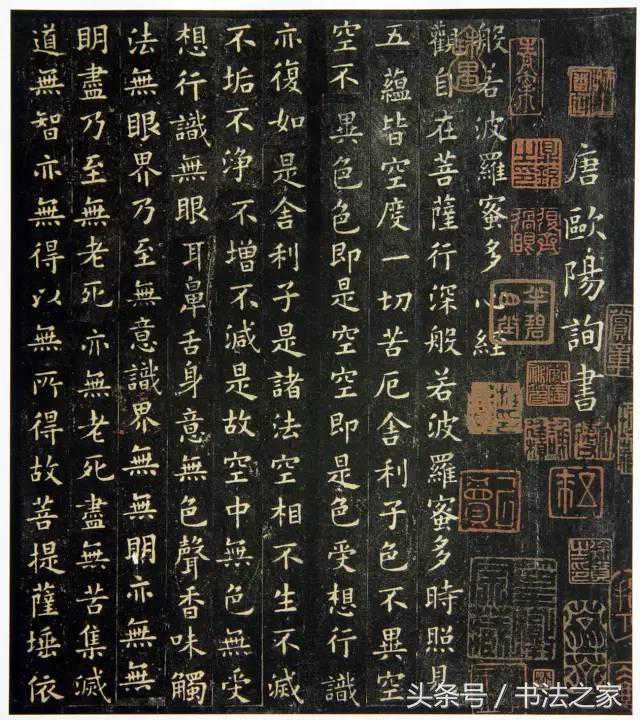 唐歐陽詢書
般若波羅蜜多心經
觀自在菩薩行深般若波羅蜜多時照見
五蘊皆空度一切苦厄舍利子色不異空
空不異色色即是空空即是色受想行識
亦復如是舍利子是諸法空相不生不滅
不垢不淨不增不減是故空中無色無受
想行識無眼耳鼻舌身意無色聲香味觸
法無眼界乃至無意識界無無明亦無無
明盡乃至無老死亦無老死盡無苦集滅
道無智亦無得以無所得故菩提薩埵依
头条号 / 书法之家